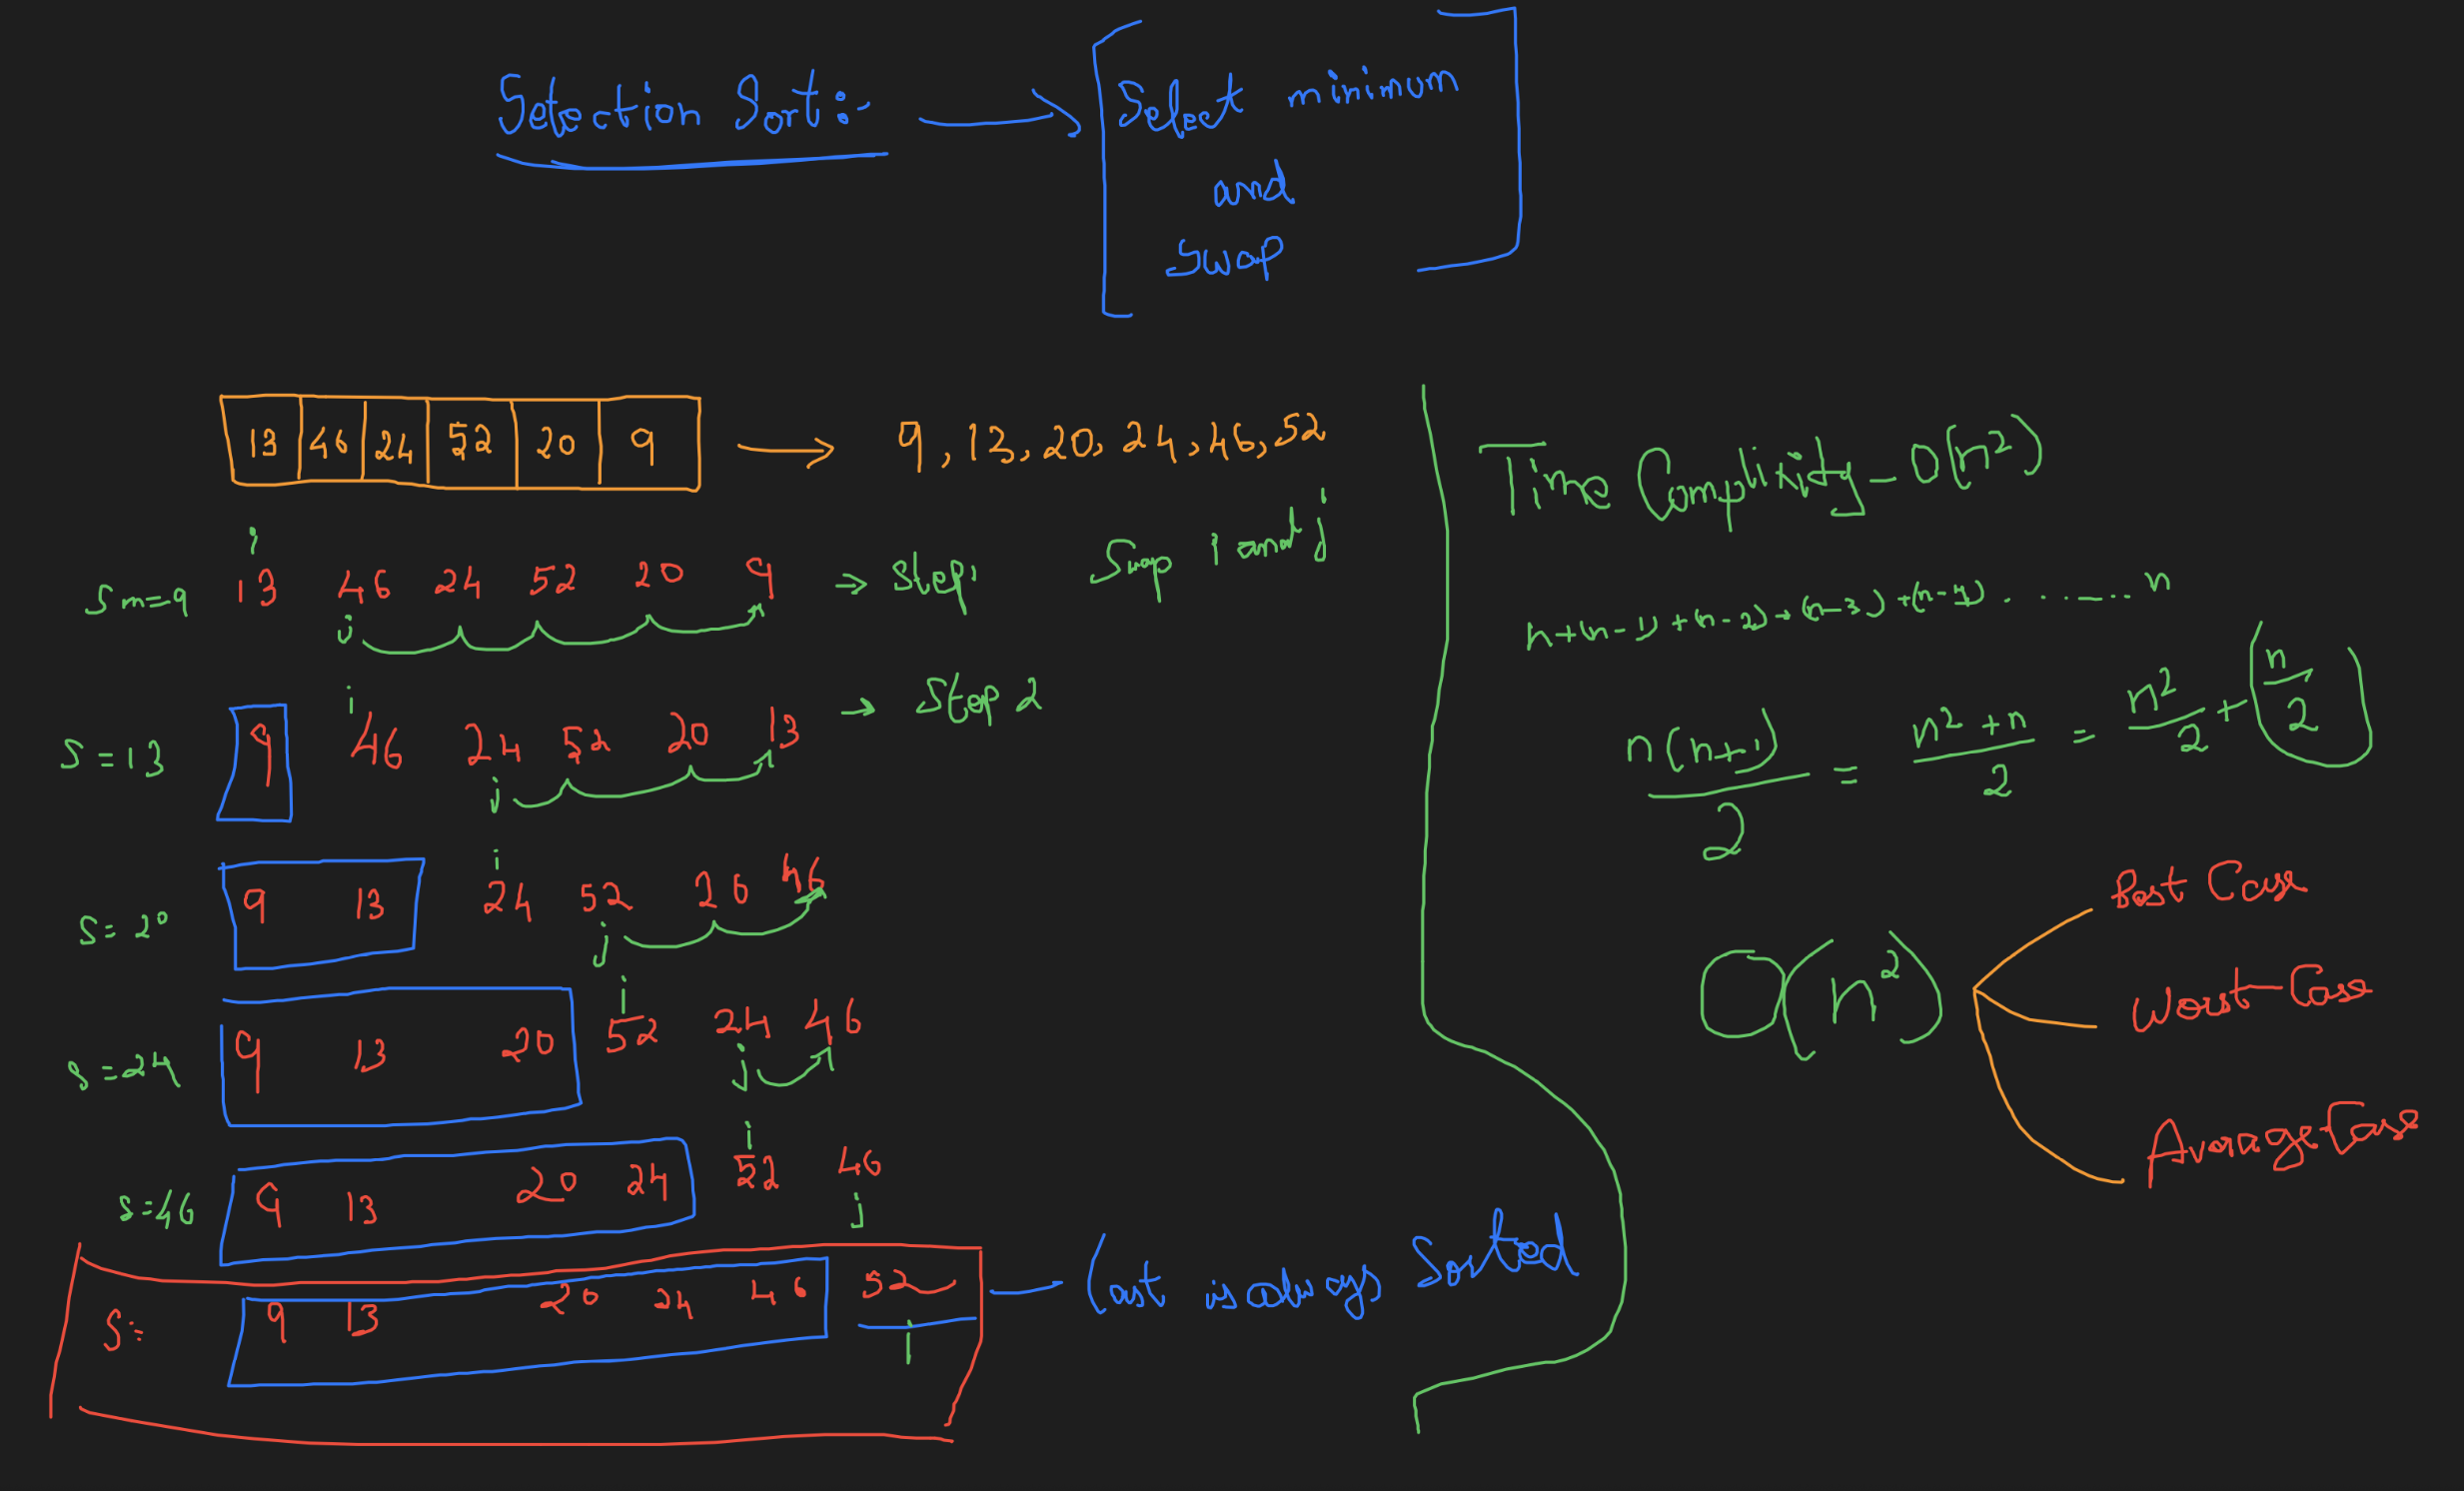 Selection Sort:- → Select minimum
and
swap
13 46 24 52 20 9 → 9, 13, 20, 24, 46, 52
i
Sm=9 13 46 24 52 20 9 → Step 1 Swap i and j
j
i
S=13 9 46 24 52 20 13 → Step 2
j
i
S=20 9 13 24 52 20 46
j
i
S=24 9 13 20 52 24 46
j
i
S=46 9 13 20 24 52 46
j
S= 9 13 20 24 46 52 - (at is always Sorted
i
Time Complixity - O(n²)
n+(n-1)+(n-2)+(n-3)+(n-4)..........n
n(n+1)/2 = n²+n/2 = n²/2 + (n/2)
O(n²)
Best Case
Worst Case
Average Case